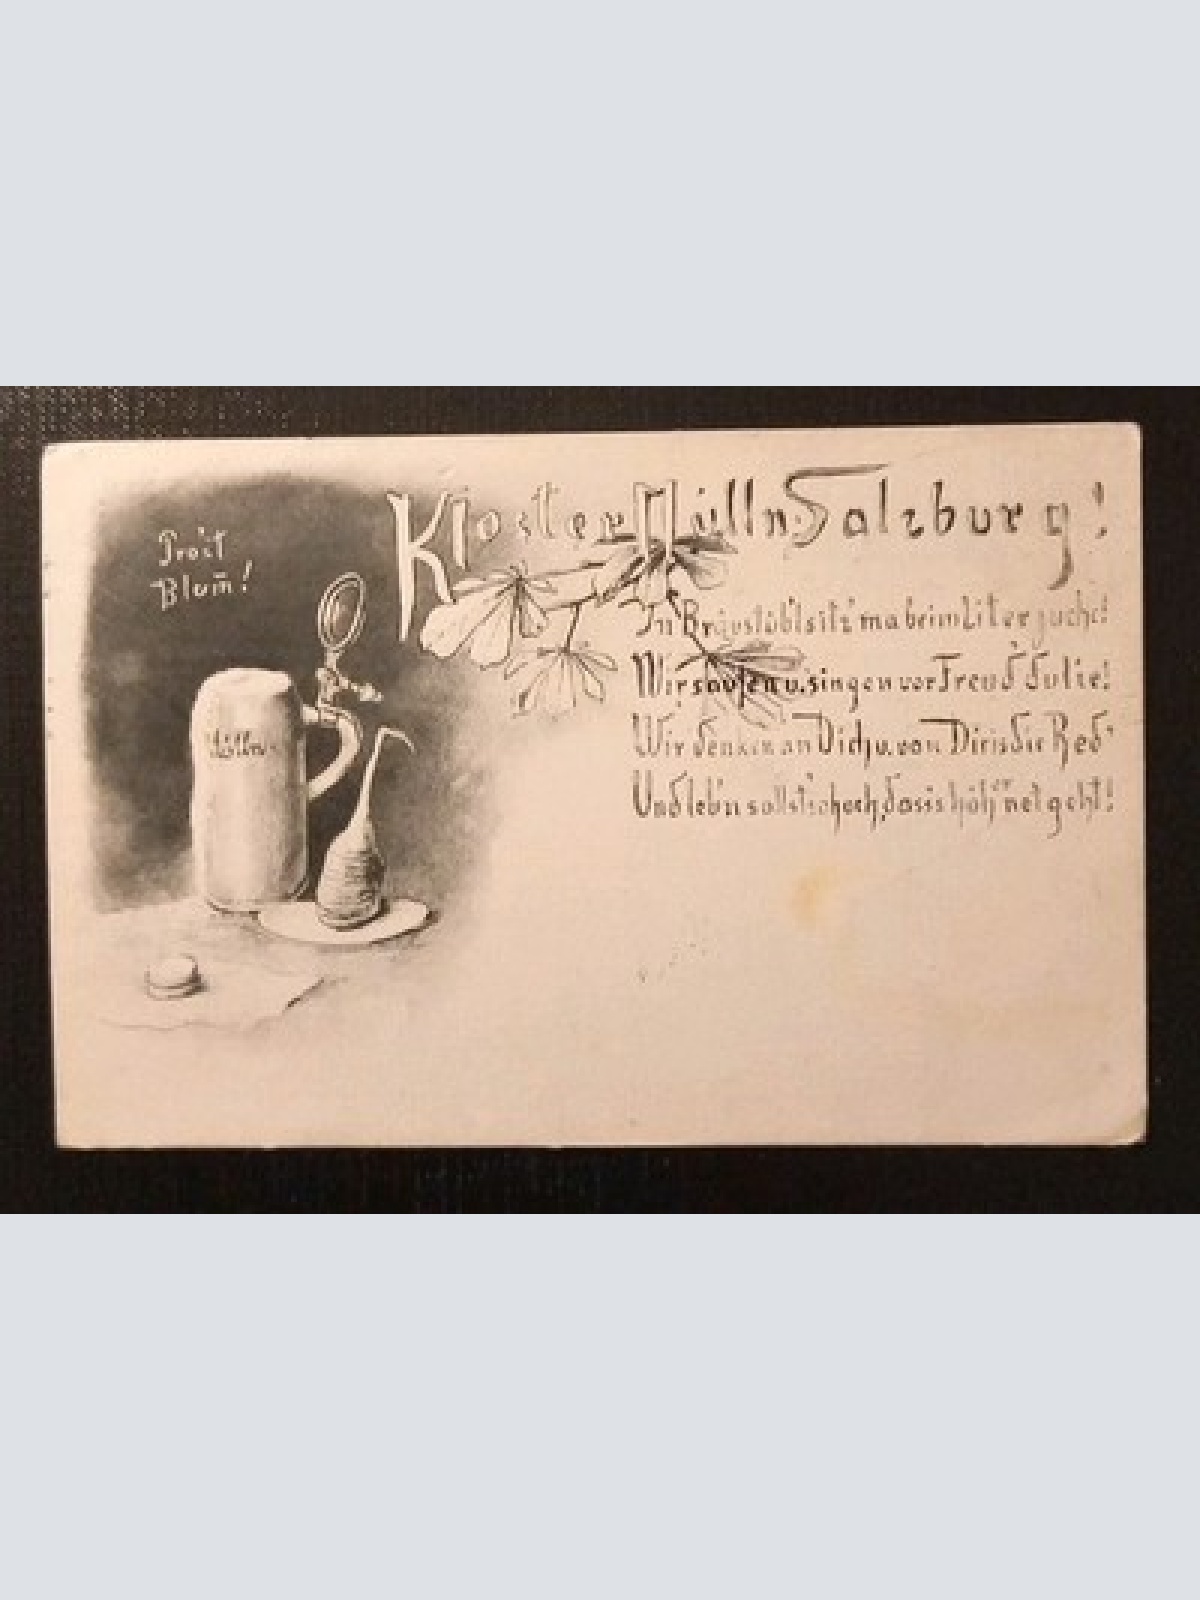 Prosit
Blum̄!
Kloster Mülln-Salzburg!
Mülln
In Bräustöbl sitz' ma beim Liter juche!
Wir saufen u. singen vor Freud dulie!
Wir denken an Dich u. von Dir is die Red'
Und leb'n sollst hoch, das is höher net geht!